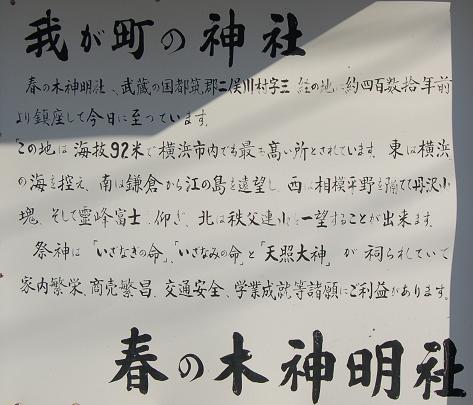 我が町の神社
春の木神明社、武蔵の国都筑郡二俣川村字三 経の地に約四百数拾年前
より鎮座して今日に至っています。
「この地は海抜92米で横浜市内でも最も高い所とされています。東は横浜
の海を控え、南は鎌倉から江の島を遠望し、西は相模平野を隔て丹沢山
塊、そして霊峰富士 仰ぎ、北は秩父連山を一望することが出来ます。
祭神は「いざなぎの命」、「いざなみの命」と「天照大神」が祠られていて
家内繁栄、商売繁昌、交通安全、学業成就等諸願にご利益があります。
春の木神明社